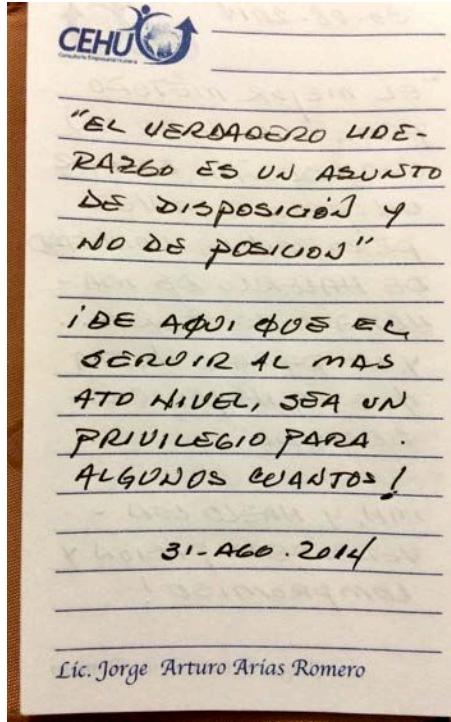 CEHU
Consultoría Empresarial Humana
"EL VERDADERO LIDE-
RAZGO ES UN ASUNTO
DE DISPOSICIÓN Y
NO DE POSICION"
¡DE AQUI QUE EL
SERVIR AL MAS
ATO NIVEL, SEA UN
PRIVILEGIO PARA
ALGUNOS CUANTOS!
31-AGO.2014
Lic. Jorge Arturo Arias Romero